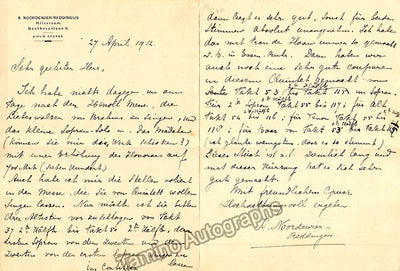 A. NOORDEWIER-REDDINGIUS
Hilversum
27 April 1912.
Sehr geehrter Herr
Ich habe nichts dagegen, um am
Tage nach der Hmoll Messe, die
Liebeswalzer von Brahms zu singen, und
das kleine Sopran-Solo u. Das Mädchen
(können Sie mir das Werk schicken?)
mit einer Erhöhung des Honorars auf
700 Mark (sieben hundert)
Auch habe ich mir die Stellen notiert
in der Messe, die Sie vom Quintett wollen
singen lassen. Nur möchte ich Sie bitten
den von Takt
37 2te Hälfte bis Takt 50 2te Hälfte, den
ersten Sopran von dem zweiten und den
zweiten von dem ersten Sopran
lassen
dann liegt es sehr gut, sonst für beide
Stimmen absolut unangenehm. Ich habe
das mit Frau de Haan immer so gemacht
z.B. in Essen
auch noch eine sehr gute
in diesem Quintett gemacht von
Takt 53 bis Takt 115 im Sopran.
Für 2te Sopran Takt 55 bis 117; für Alt
Takt 54 bis 116; für Tenor Takt 55 bis
118; für Bass von Takt 53 bis Takt
(ich glaube wenigstens, dass es so stimmt)
Dieses Stück ist ziemlich lang und
mit dieser Kürzung hat es sich sehr
gut gemacht.
Mit freundlichem Gruss
Hochachtungsvoll ergeben
A. Noordewier-
Reddingius
Tamino Autographs